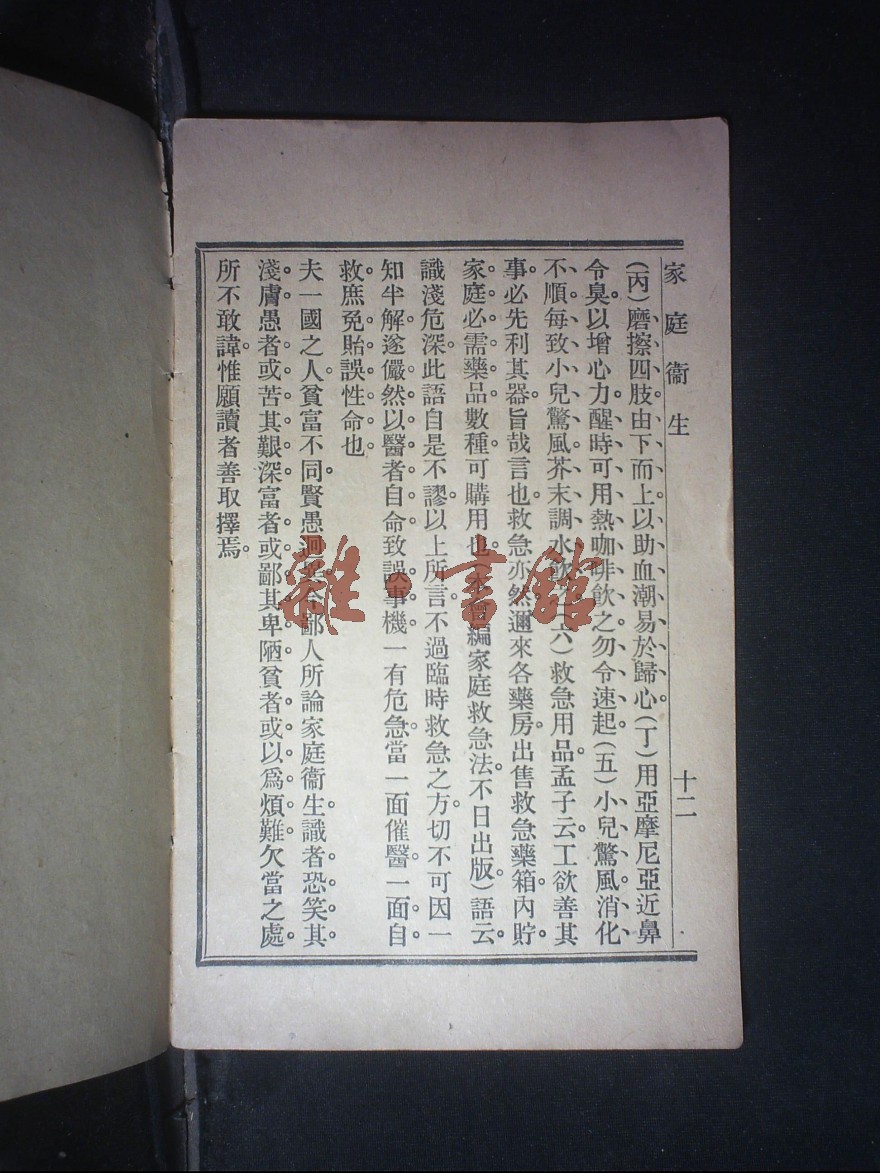 家庭衞生
十二
(丙)磨擦四肢由下而上以助血潮易於歸心。(丁)用亞摩尼亞近鼻
令臭以增心力。醒時可用熱咖啡飲之勿令速起。(五)小兒驚風消化
不順每致小兒驚風芥末調水飲之(六)救急用品。孟子云。工欲善其
事。必先利其器。旨哉言也。救急亦然。邇來各藥房。出售救急藥箱。內貯。
家庭必需藥品數種。可購用也。(本會編家庭救急法。不日出版。)語云
識淺危深。此語自是不謬。以上所言。不過臨時救急之方。切不可因一
知半解。遂儼然以醫者自命。致誤事機。一有危急。當一面催醫。一面自
救。庶免貽誤性命也。
夫一國之人。貧富不同。賢愚迥異。今鄙人所論家庭衞生。識者恐笑其
淺膚。愚者或苦其艱深。富者或鄙其卑陋。貧者或以爲煩難。欠當之處。
所不敢諱。惟願讀者善取擇焉。
雜·書館